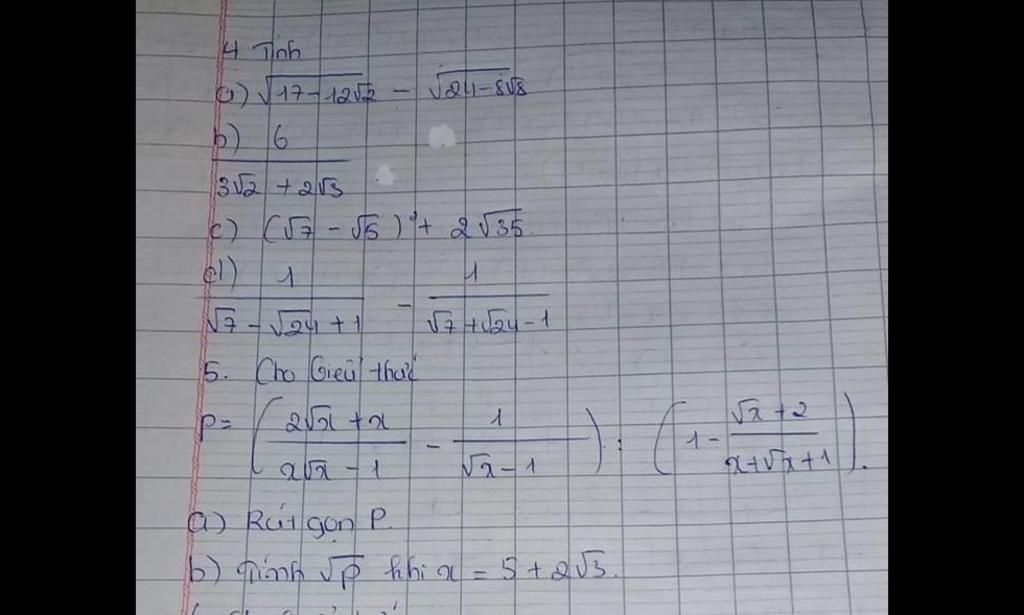 4 Tính
a) √17-12√2 - √24-8√8
b) 6
3√2 + 2√3
c) (√7 - √5)² + 2√35
d) 1 / (√7 - √24 + 1) - 1 / (√7 + √24 - 1)
5. Cho biểu thức
P = ( (2√x + x) / (x√x - 1) - 1 / (√x - 1) ) : ( 1 - (√x + 2) / (x + √x + 1) ).
a) Rút gọn P.
b) Tính √P khi x = 5 + 2√3.